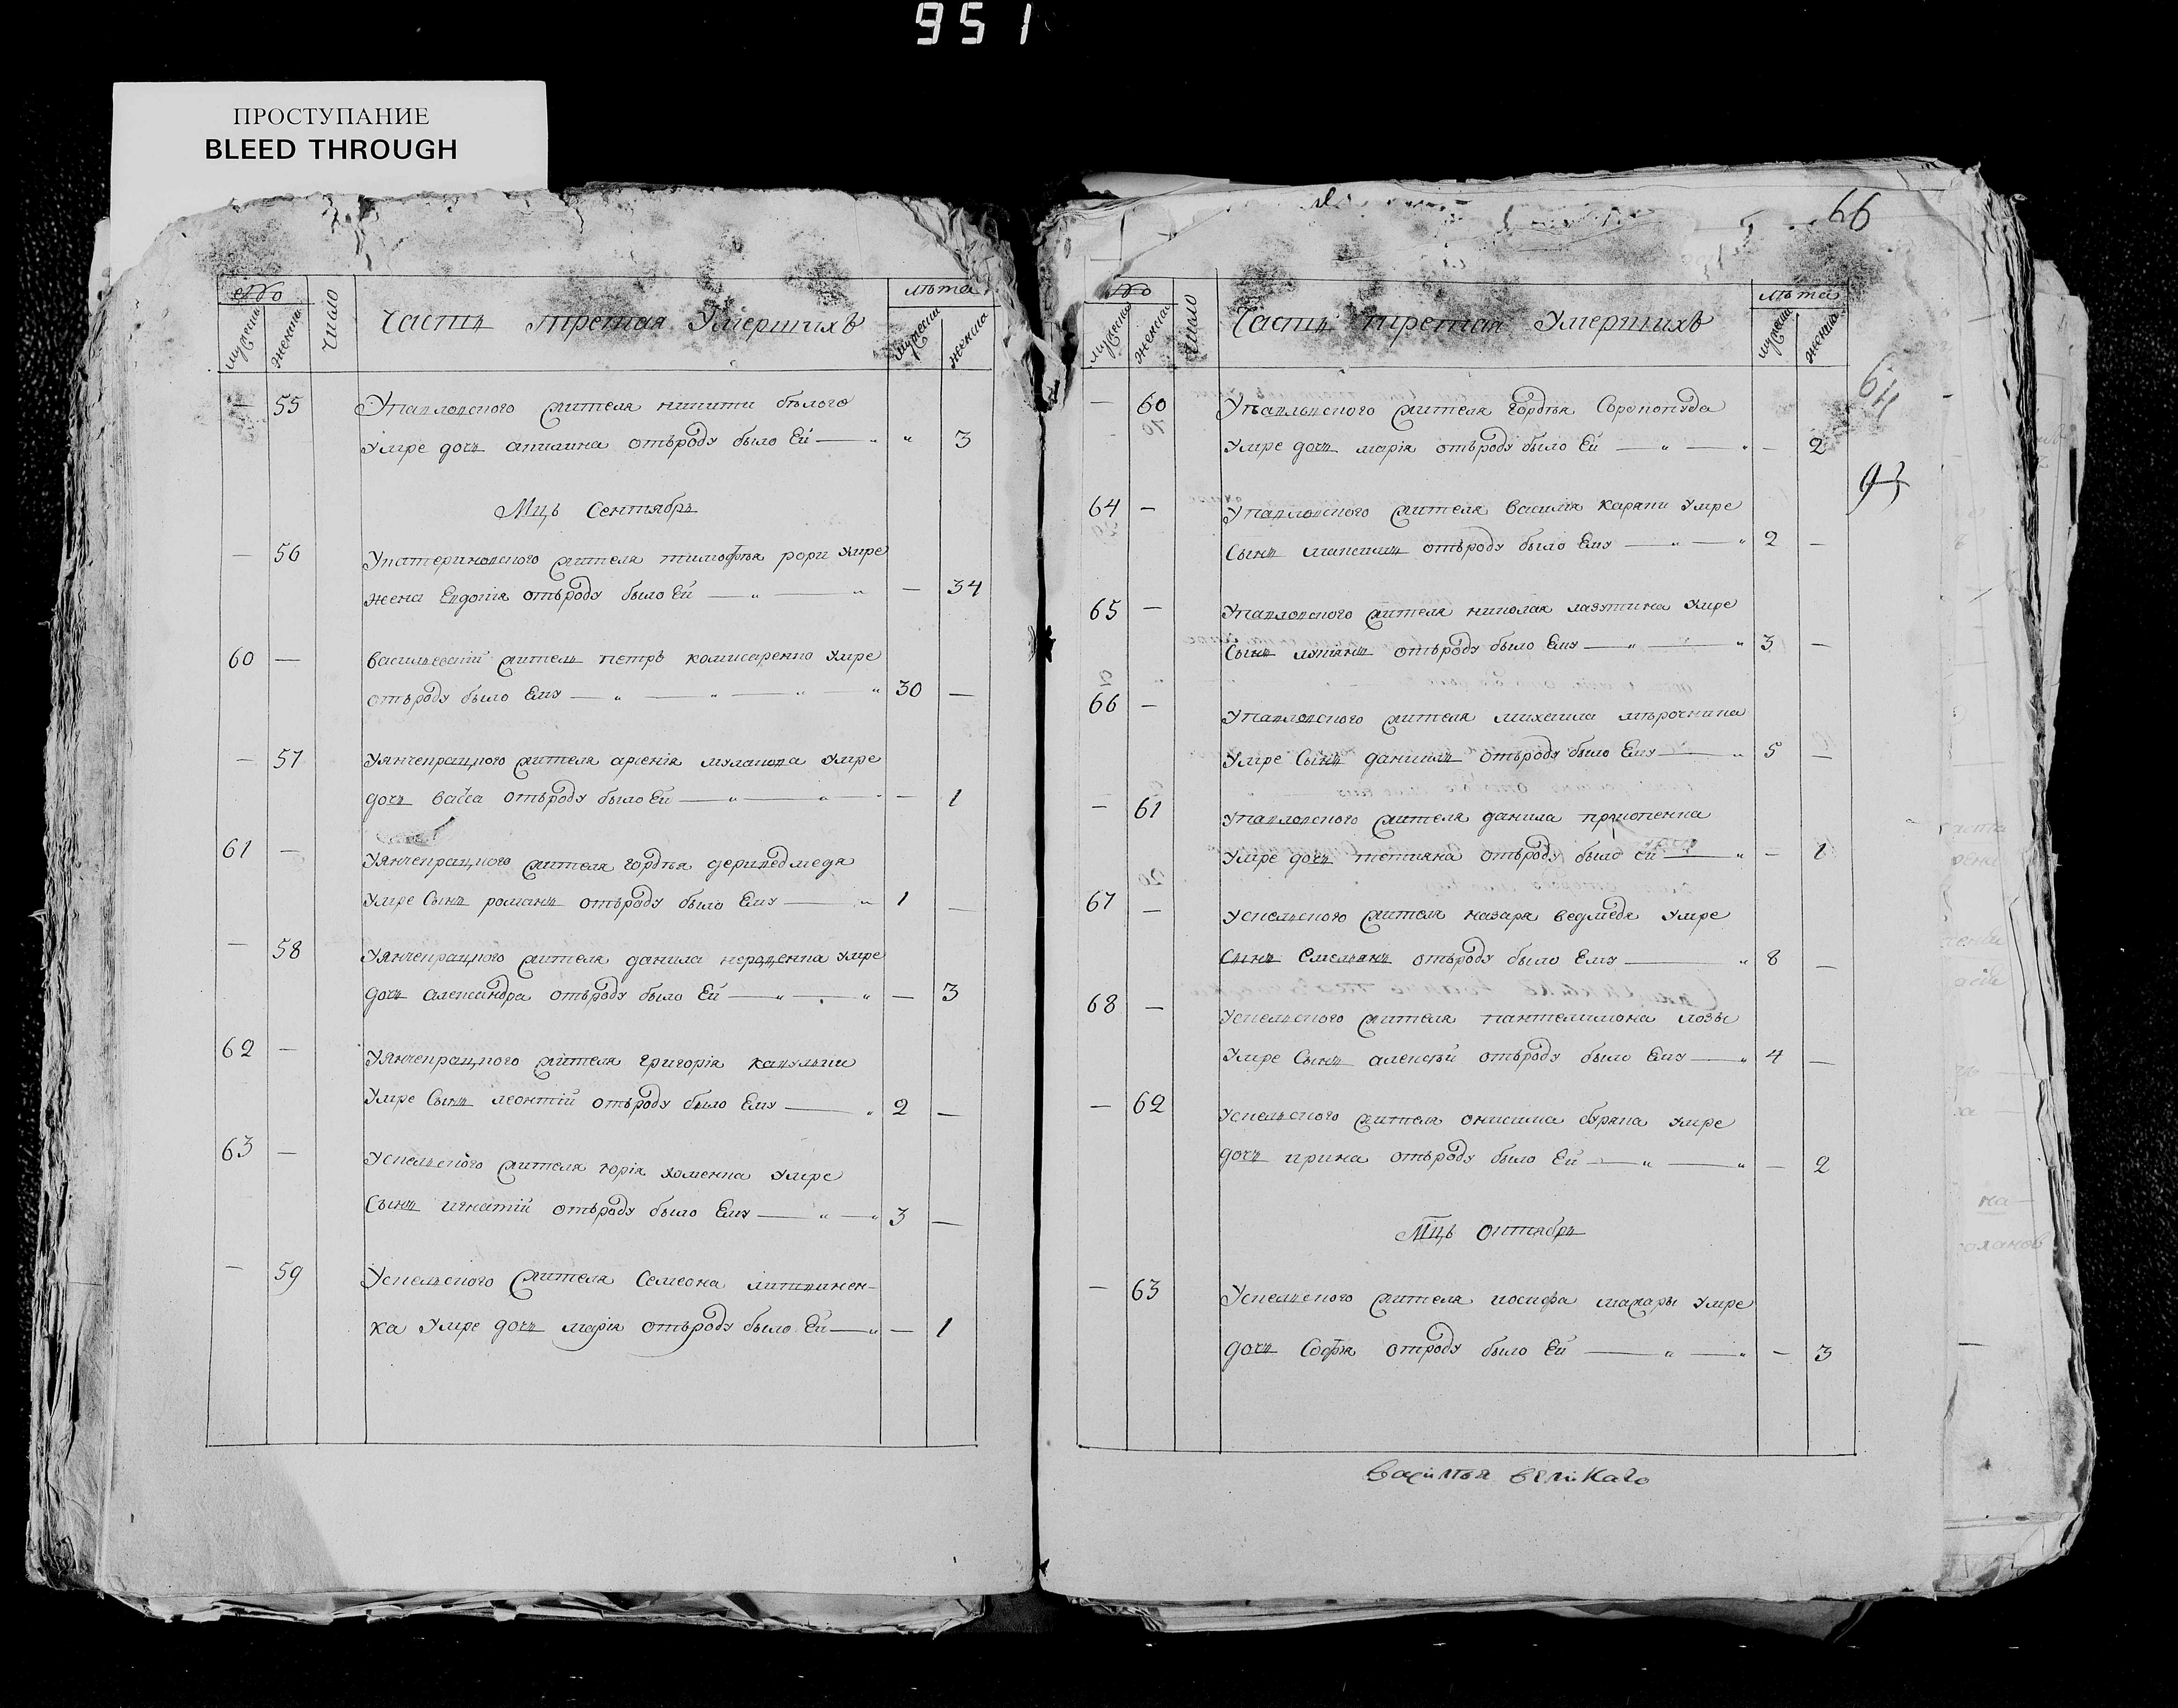 951
ПРОСТУПАНИЕ
BLEED THROUGH
№
мужеска
женска
Число
Часть третая Умершихъ
лѣта
мужеска
женска
— 55 Упавловского жителя никити бѣлого
Умре дочь акилина отъроду было Ей — „ „ 3
Мцъ Сентябрь
— 56 Укатериновского жителя тимофѣя рори Умре
жена Евдокія отъроду было Ей — „ — „ — 34
60 — васильевскій житель петръ комисаренко Умре
отъроду было Ему — „ — „ — „ — „ 30 —
57 Уянчепрацкого жителя арсенія мулакова Умре
дочь васса отъроду было Ей — „ — „ — 1
61 — Уянчепрацкого жителя гордѣя
Умре Сынъ романъ отъроду было Ему — „ 1 —
— 58 Уянчепрацкого жителя данила Умре
дочь александра отъроду было Ей — „ — „ — 3
62 — Уянчепрацкого жителя григорія
Умре Сынъ леонтій отъроду было Ему — „ 2 —
63 — Успельского жителя юрія хоменка Умре
Сынъ игнатій отъроду было Ему — „ — „ 3 —
— 59 Успельского жителя Семеона литвинен-
ка Умре дочь марія отъроду было Ей — „ — 1
66
№
мужеска
женска
Число
Часть третая Умершихъ
лѣта
мужеска
женска
64
— 60 Упавловского жителя гордѣя Соропопуда
Умре дочь марія отъроду было Ей — „ — „ — 2
93
64 — Упавловского жителя василія Умре
Сынъ максимъ отъроду было Ему — „ — „ 2 —
65 — Упавловского жителя николая лазутина Умре
Сынъ лукіянъ отъроду было Ему — „ — „ 3 —
66 — Упавловского жителя михаила мѣрочника
Умре Сынъ даниилъ отъроду было Ему — „ 5 —
— 61 Упавловского жителя данила
Умре дочь тетияна отъроду было ей — „ — 1
67 — Успельского жителя назара ведмедя Умре
Сынъ Емельянъ отъроду было Ему — „ 8 —
68 — Успельского жителя пантелимона лозы
Умре Сынъ алексѣй отъроду было Ему — „ 4 —
— 62 Успельского жителя онисима буряка Умре
дочь ирина отъроду было Ей — „ — „ — 2
Мцъ октябрь
— 63 Успельского жителя иосифа махары Умре
дочь Софія отъроду было Ей — „ — „ — 3
василья великаго